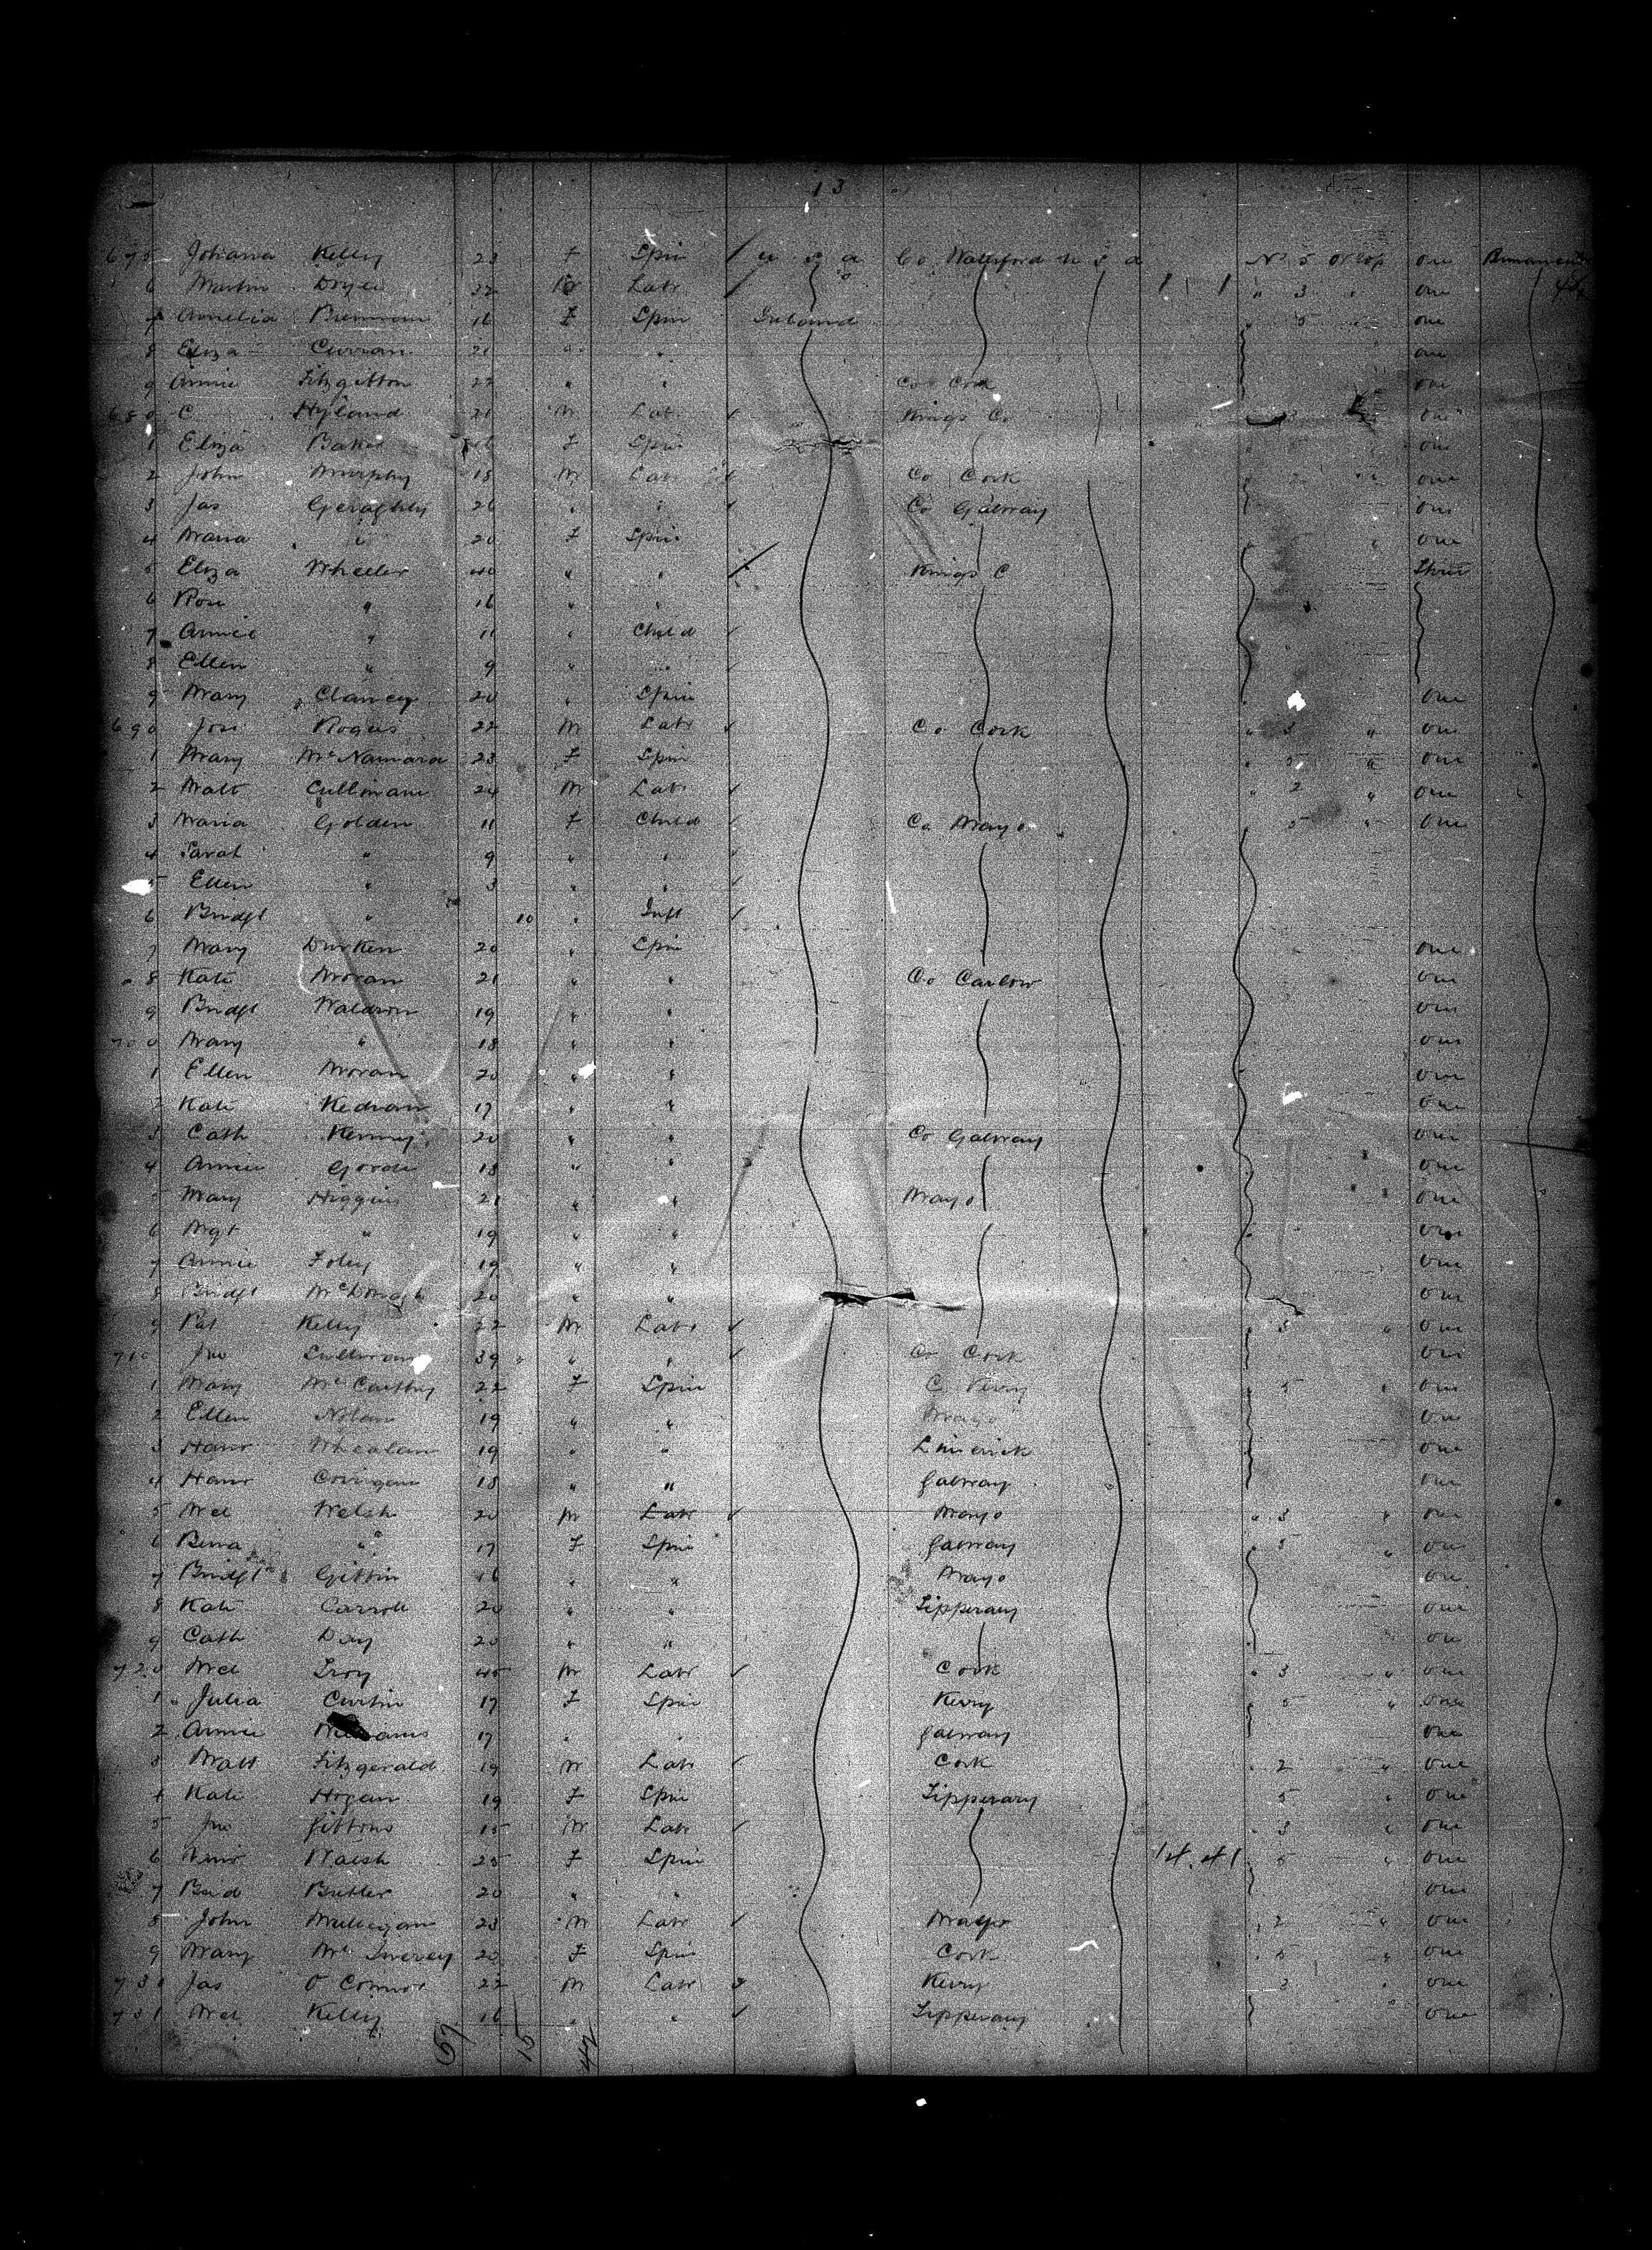 13
675 Johana Kelly 23 F Spin U S A Co Waterford U S A No 5 Orlop one
6 Martin Doyle 32 M Labr 1 1 " 3 " one
7 16 F Spin Ireland " 5 " one
8 Eliza Curran 21 " " one
9 Annie Fitzgibbon 22 " " Co Cork one
680 C Hyland 21 M Lab Kings Co. one
1 Eliza Baker F Spin one
2 John Murphy 18 M Labr Co Cork " 2 " one
3 Jas Geraghty 26 " " Co Galway one
4 Maria " 20 F Spin " one
5 Eliza Wheeler 40 " " Kings C Three
6 Rose " 16 " "
7 Annie " 11 " Child
8 Ellen " 9 " "
9 Mary Clancey 20 " Spin one
690 Jos Rogers 22 M Labr Co Cork " 3 " one
1 Mary McNamara 23 F Spin " 5 " one
2 Matt Cullinane 24 M Labr " 2 " one
3 Maria Golden 11 F Child Co. Mayo 5 " one
4 Sarah " 9 " "
5 Ellen " 3 " "
6 Bridgt " 10 " Inft
7 Mary Durken 20 " Spin one
8 Kate Moran 21 " " Co Carlow one
9 Bridgt Waldron 19 " " one
700 Mary " 18 " " one
1 Ellen Moran 20 " " one
2 Kate 17 " " one
3 Cath Kenny 20 " " Co Galway one
4 Annie 18 " " one
5 Mary Higgins 21 " " Mayo one
6 Mgt " 19 " " one
7 Annie Foley 19 " " one
8 Bridgt 20 " " one
9 Pat Kelly 22 M Labr " 3 " one
710 Jno Sullivan 39 " " Co Cork one
1 Mary McCarthy 22 F Spin C Kerry " 5 " one
2 Ellen Nolan 19 " " Mayo one
3 Hanr Whealan 19 " " Limerick one
4 Hanr 18 " " Galway one
5 Mcl Welsh 20 M Labr Mayo " 3 " one
6 " 17 F Spin Galway " 5 " one
7 Bridgt 16 " " Mayo one
8 Kate Carroll 20 " " Tipperary one
9 Cath Day 20 " " one
720 Mcl Troy 45 M Labr Cork " 3 " one
1 Julia Curtin 17 F Spin Kerry " 5 " one
2 Annie Williams 17 " " Galway one
3 Matt Fitzgerald 19 M Labr Cork " 2 " one
4 Kate Hogan 19 F Spin Tipperary 5 " one
5 Jno Gittons 15 M Labr " 3 " one
6 Walsh 25 F Spin 14.41 5 " one
7 Butler 20 " " one
8 John Mulligan 23 M Labr Mayo " 2 " one
9 Mary 20 F Spin Cork " 5 " one
730 Jas O Connor 22 M Labr Kerry 2 " one
731 Mcl Kelly 16 " " Tipperary one
57 15 42